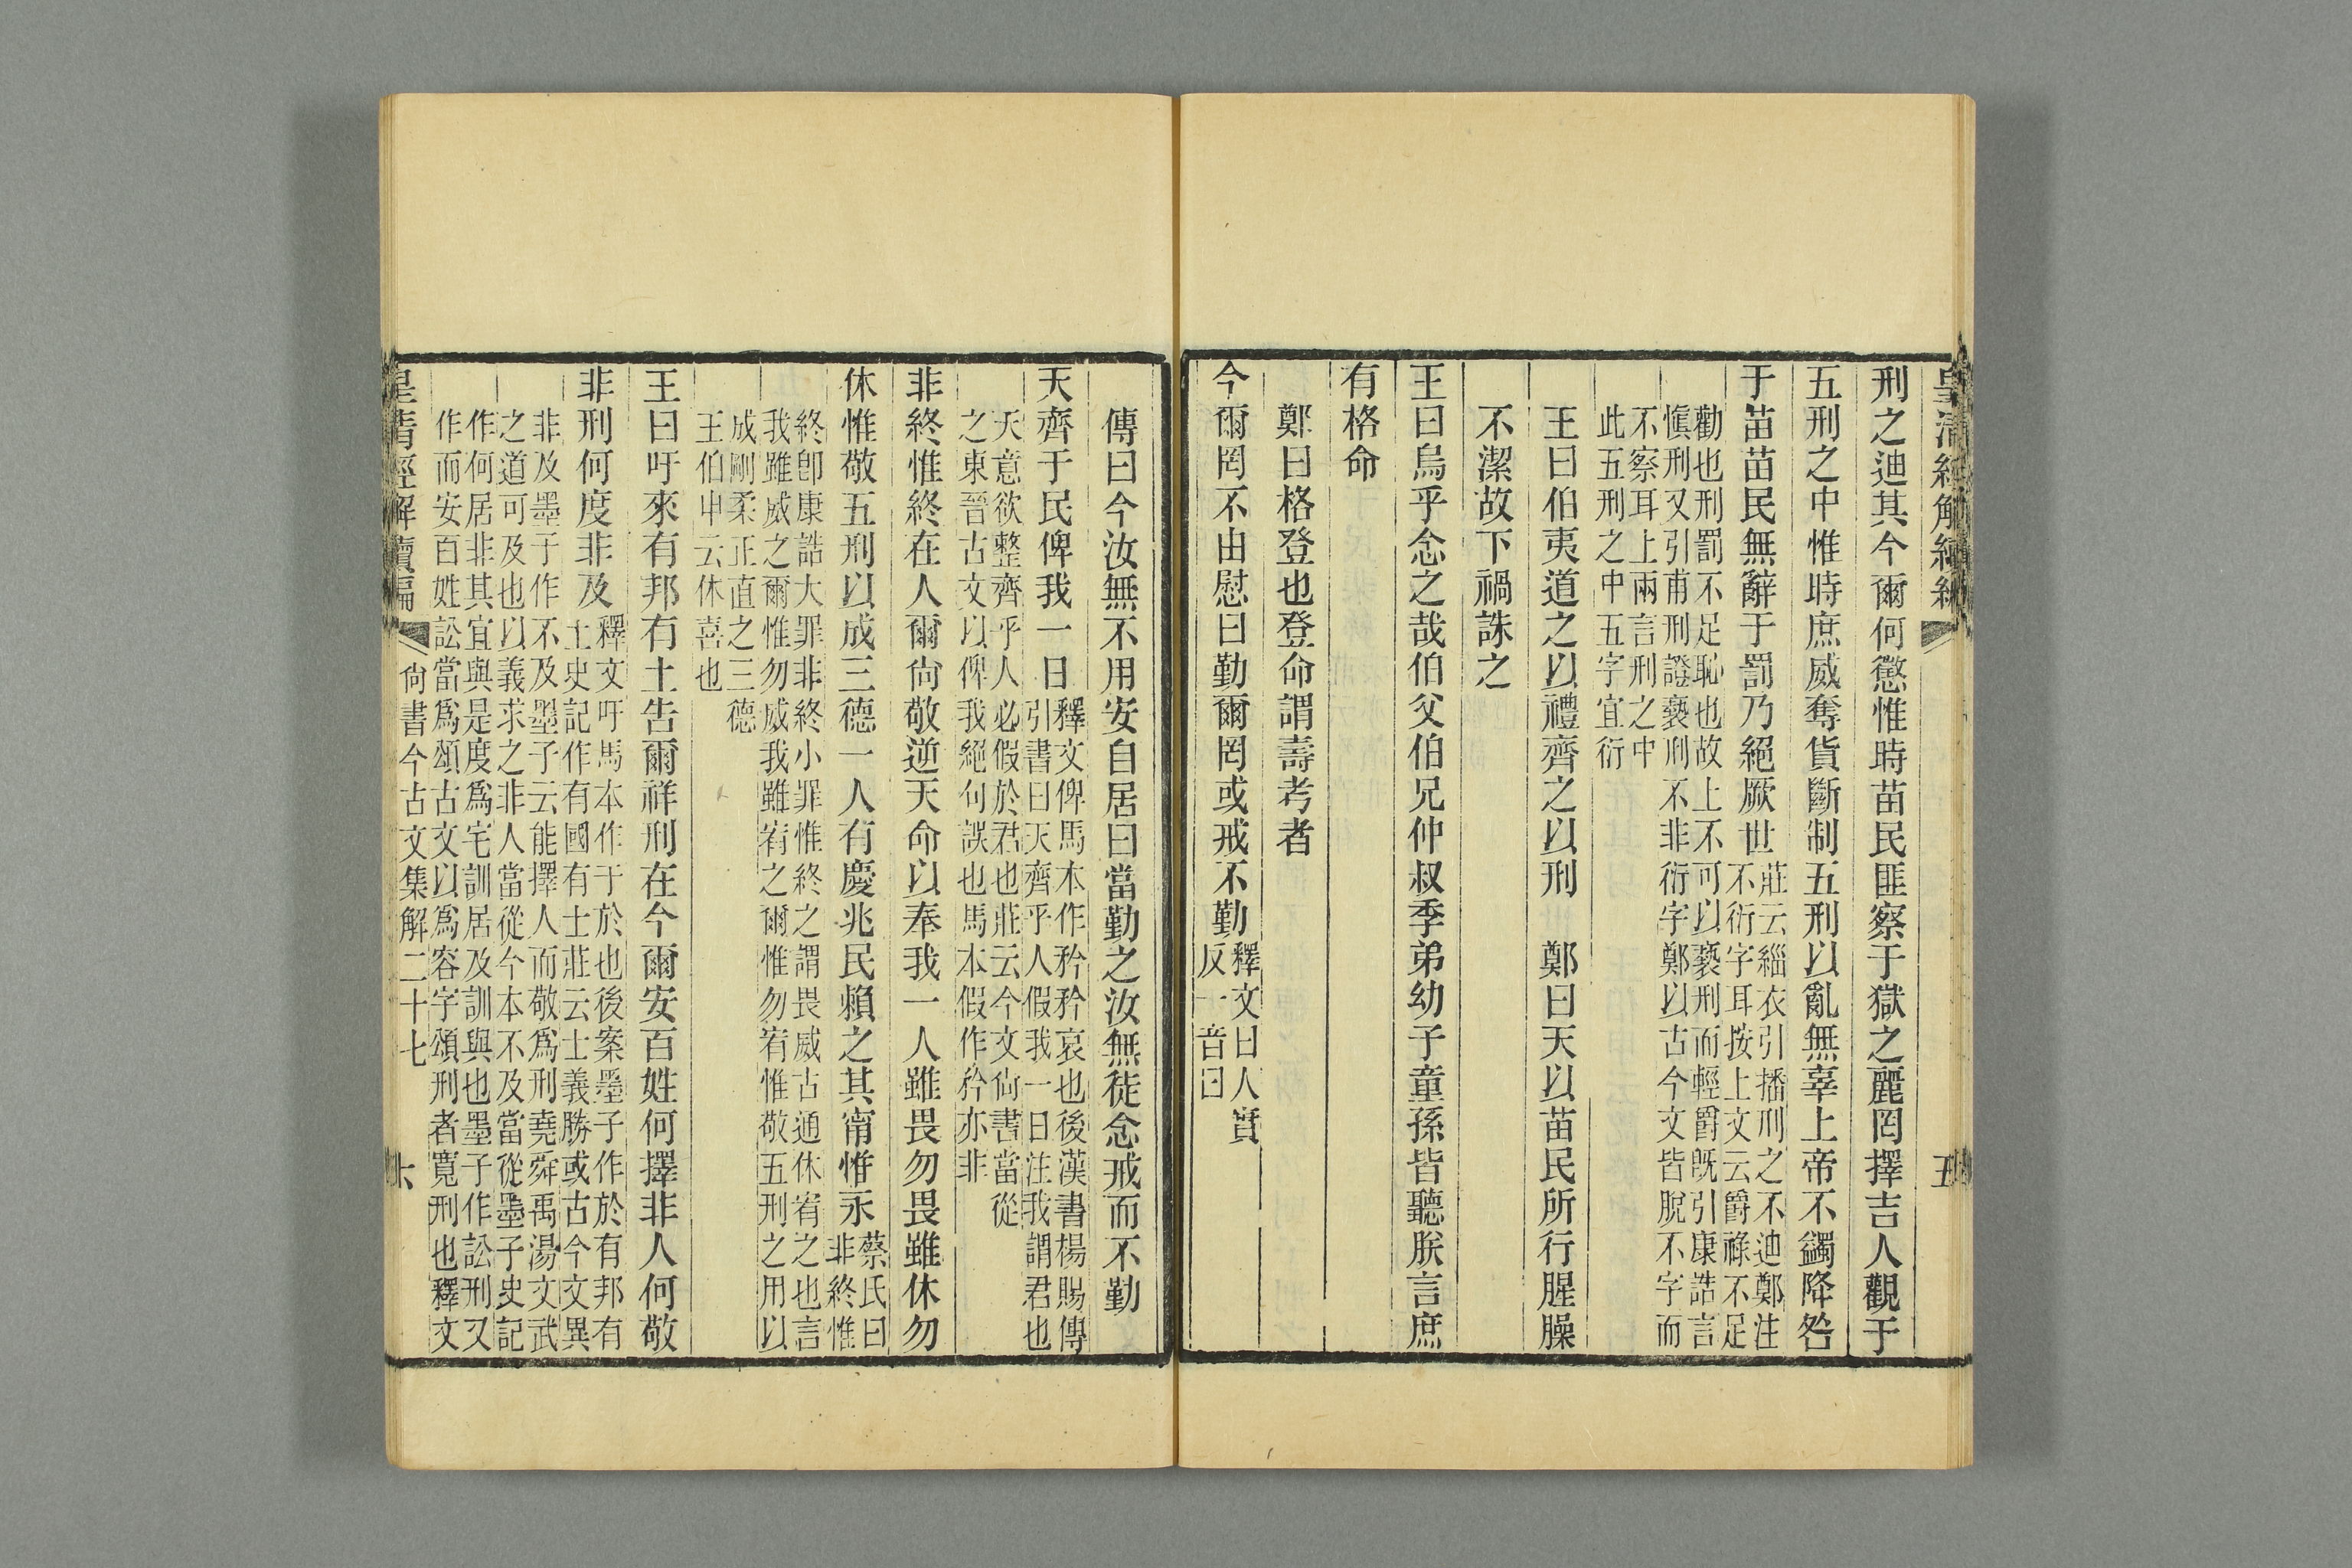 皇清經解續編
五
刑之迪其今爾何懲惟時苗民匪察于獄之麗罔擇吉人觀于
五刑之中惟時庶威奪貨斷制五刑以亂無辜上帝不蠲降咎
于苗苗民無辭于罰乃絕厥世
莊云緇衣引播刑之不迪鄭注
不衍字耳按上文云爵祿不足
勸也刑罰不足恥也故上不可以褻刑而輕爵旣引康誥言
愼刑又引甫刑證褻刑不非衍字鄭以古今文皆脫不字而
不察耳上兩言刑之中
此五刑之中五字宜衍
王曰伯夷道之以禮齊之以刑　鄭曰天以苗民所行腥臊
不潔故下禍誅之
王曰烏乎念之哉伯父伯兄仲叔季弟幼子童孫皆聽朕言庶
有格命
鄭曰格登也登命謂壽考者
今爾罔不由慰曰勤爾罔或戒不勤
釋文曰人實
反一音曰
傳曰今汝無不用安自居曰當勤之汝無徒念戒而不勤
天齊于民俾我一日
釋文俾馬本作矜矜哀也後漢書楊賜傳
引書曰天齊乎人假我一日注我謂君也
天意欲整齊乎人必假於君也莊云今文尙書當從
之東晉古文以俾我絕句誤也馬本假作矜亦非
非終惟終在人爾尙敬逆天命以奉我一人雖畏勿畏雖休勿
休惟敬五刑以成三德一人有慶兆民賴之其甯惟永
蔡氏曰
非終惟
終卽康誥大罪非終小罪惟終之謂畏威古通休宥之也言
我雖威之爾惟勿威我雖宥之爾惟勿宥惟敬五刑之用以
成剛柔正直之三德
王伯申云休喜也
王曰吁來有邦有土告爾祥刑在今爾安百姓何擇非人何敬
非刑何度非及
釋文吁馬本作于於也後案墨子作於有邦有
土史記作有國有士莊云士義勝或古今文異
非及墨于作不及墨子云能擇人而敬爲刑堯舜禹湯文武
之道可及也以義求之非人當從今本不及當從墨子史記
作何居非其宜與是度爲宅訓居及訓與也墨子作訟刑又
作而安百姓訟當爲頌古文以爲容字頌刑者寬刑也釋文
皇清經解續編
尙書今古文集解二十七
六